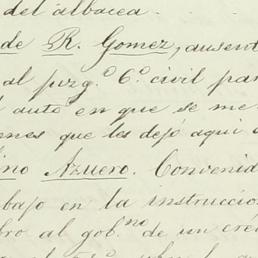 del albacea.
de R. Gomez, ausent
al juzg.º 6.º civil par
auto en que se me
nes que les dejó aquí
ino Azuero. Convenid
bajo en la instruccio
ro al gob.no de un cré